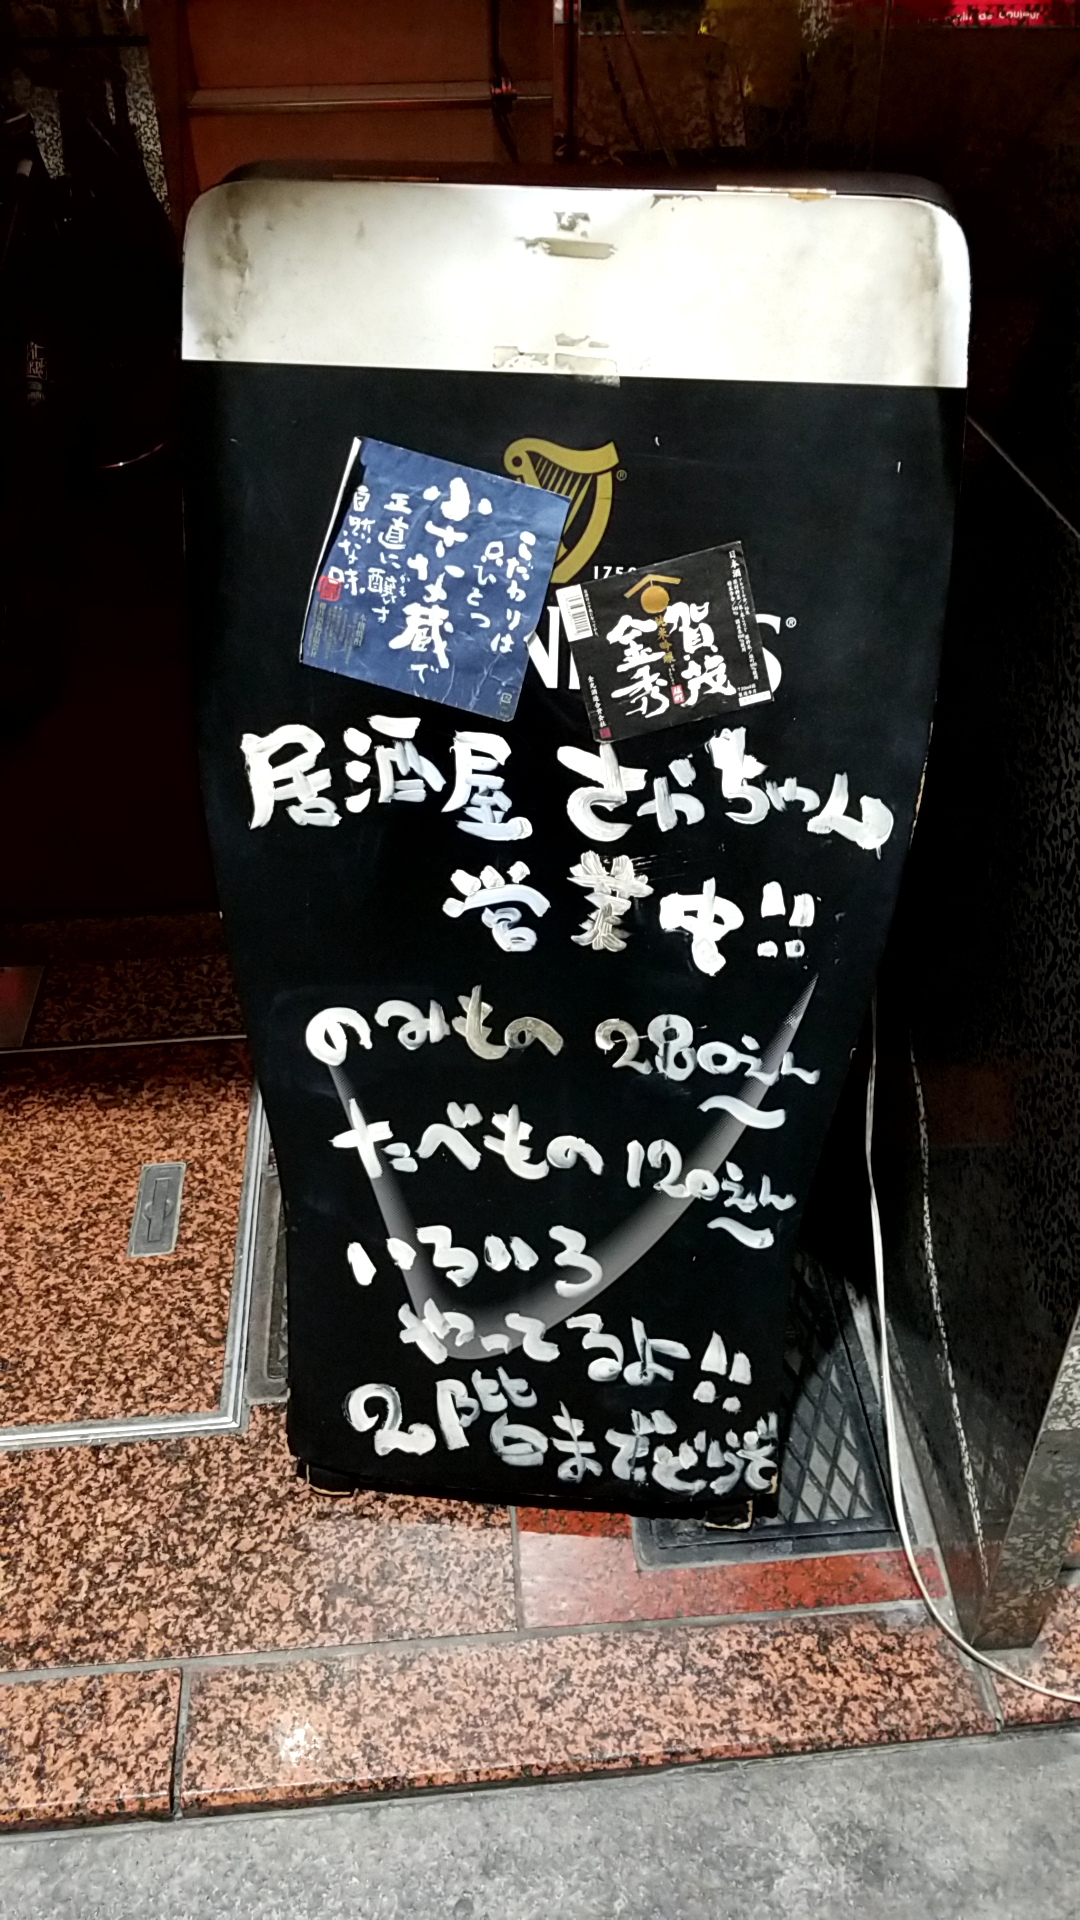 こだわりは
只ひとつ
小さな蔵で
正直に醸す
自然な味
1759
日本酒
純米吟醸
賀茂
金秀
金光酒造合資会社
居酒屋 さかちゃん
営業中!!
のみもの 280えん〜
たべもの 120えん〜
いろいろ
やってるよ!!
2階までどうぞ